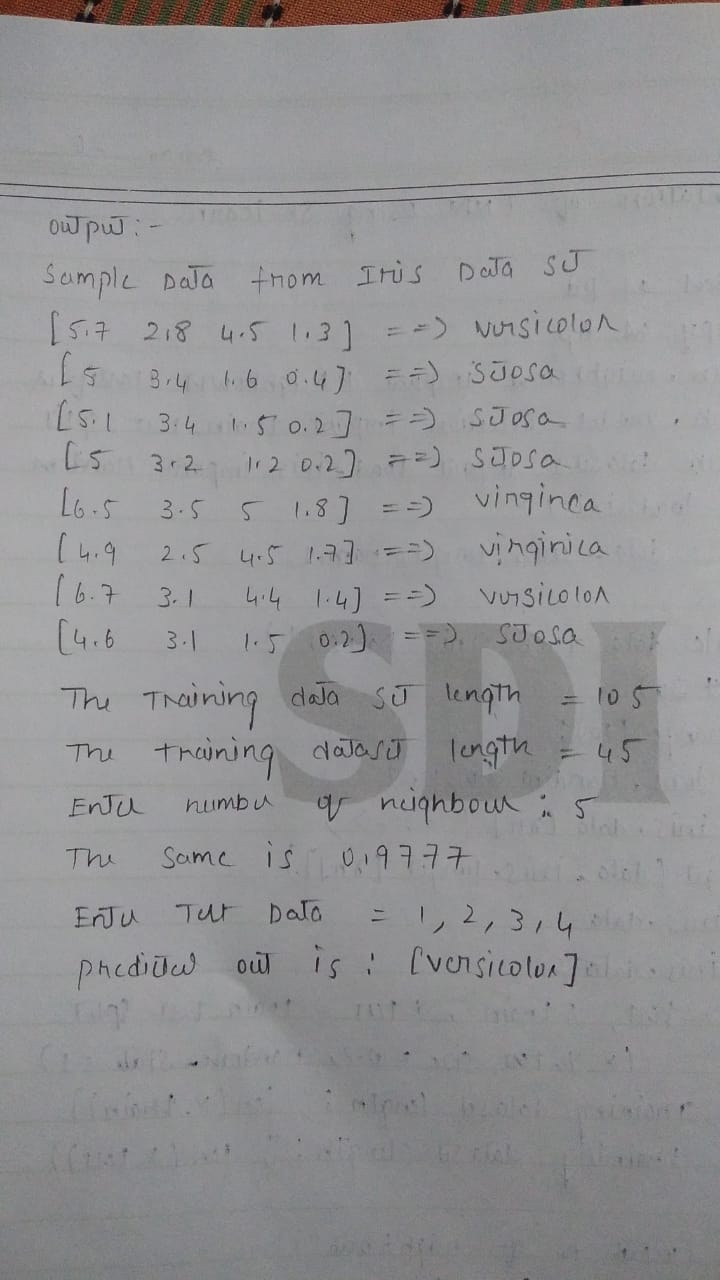 output :-
Sample Data from Iris Data set
[5.7 2.8 4.5 1.3] ==> versicolor
[5 3.4 1.6 0.4] ==> setosa
[5.1 3.4 1.5 0.2] ==> setosa
[5 3.2 1.2 0.2] ==> setosa
[6.5 3.5 5 1.8] ==> virginca
[4.9 2.5 4.5 1.7] ==> virginica
[6.7 3.1 4.4 1.4] ==> versicolor
[4.6 3.1 1.5 0.2] ==> setosa
SDI
The Training data set length = 105
The training dataset length = 45
Enter number of neighbour : 5
The Same is 0.9777
Enter Test Data = 1, 2, 3, 4
predicted out is : [versicolor]